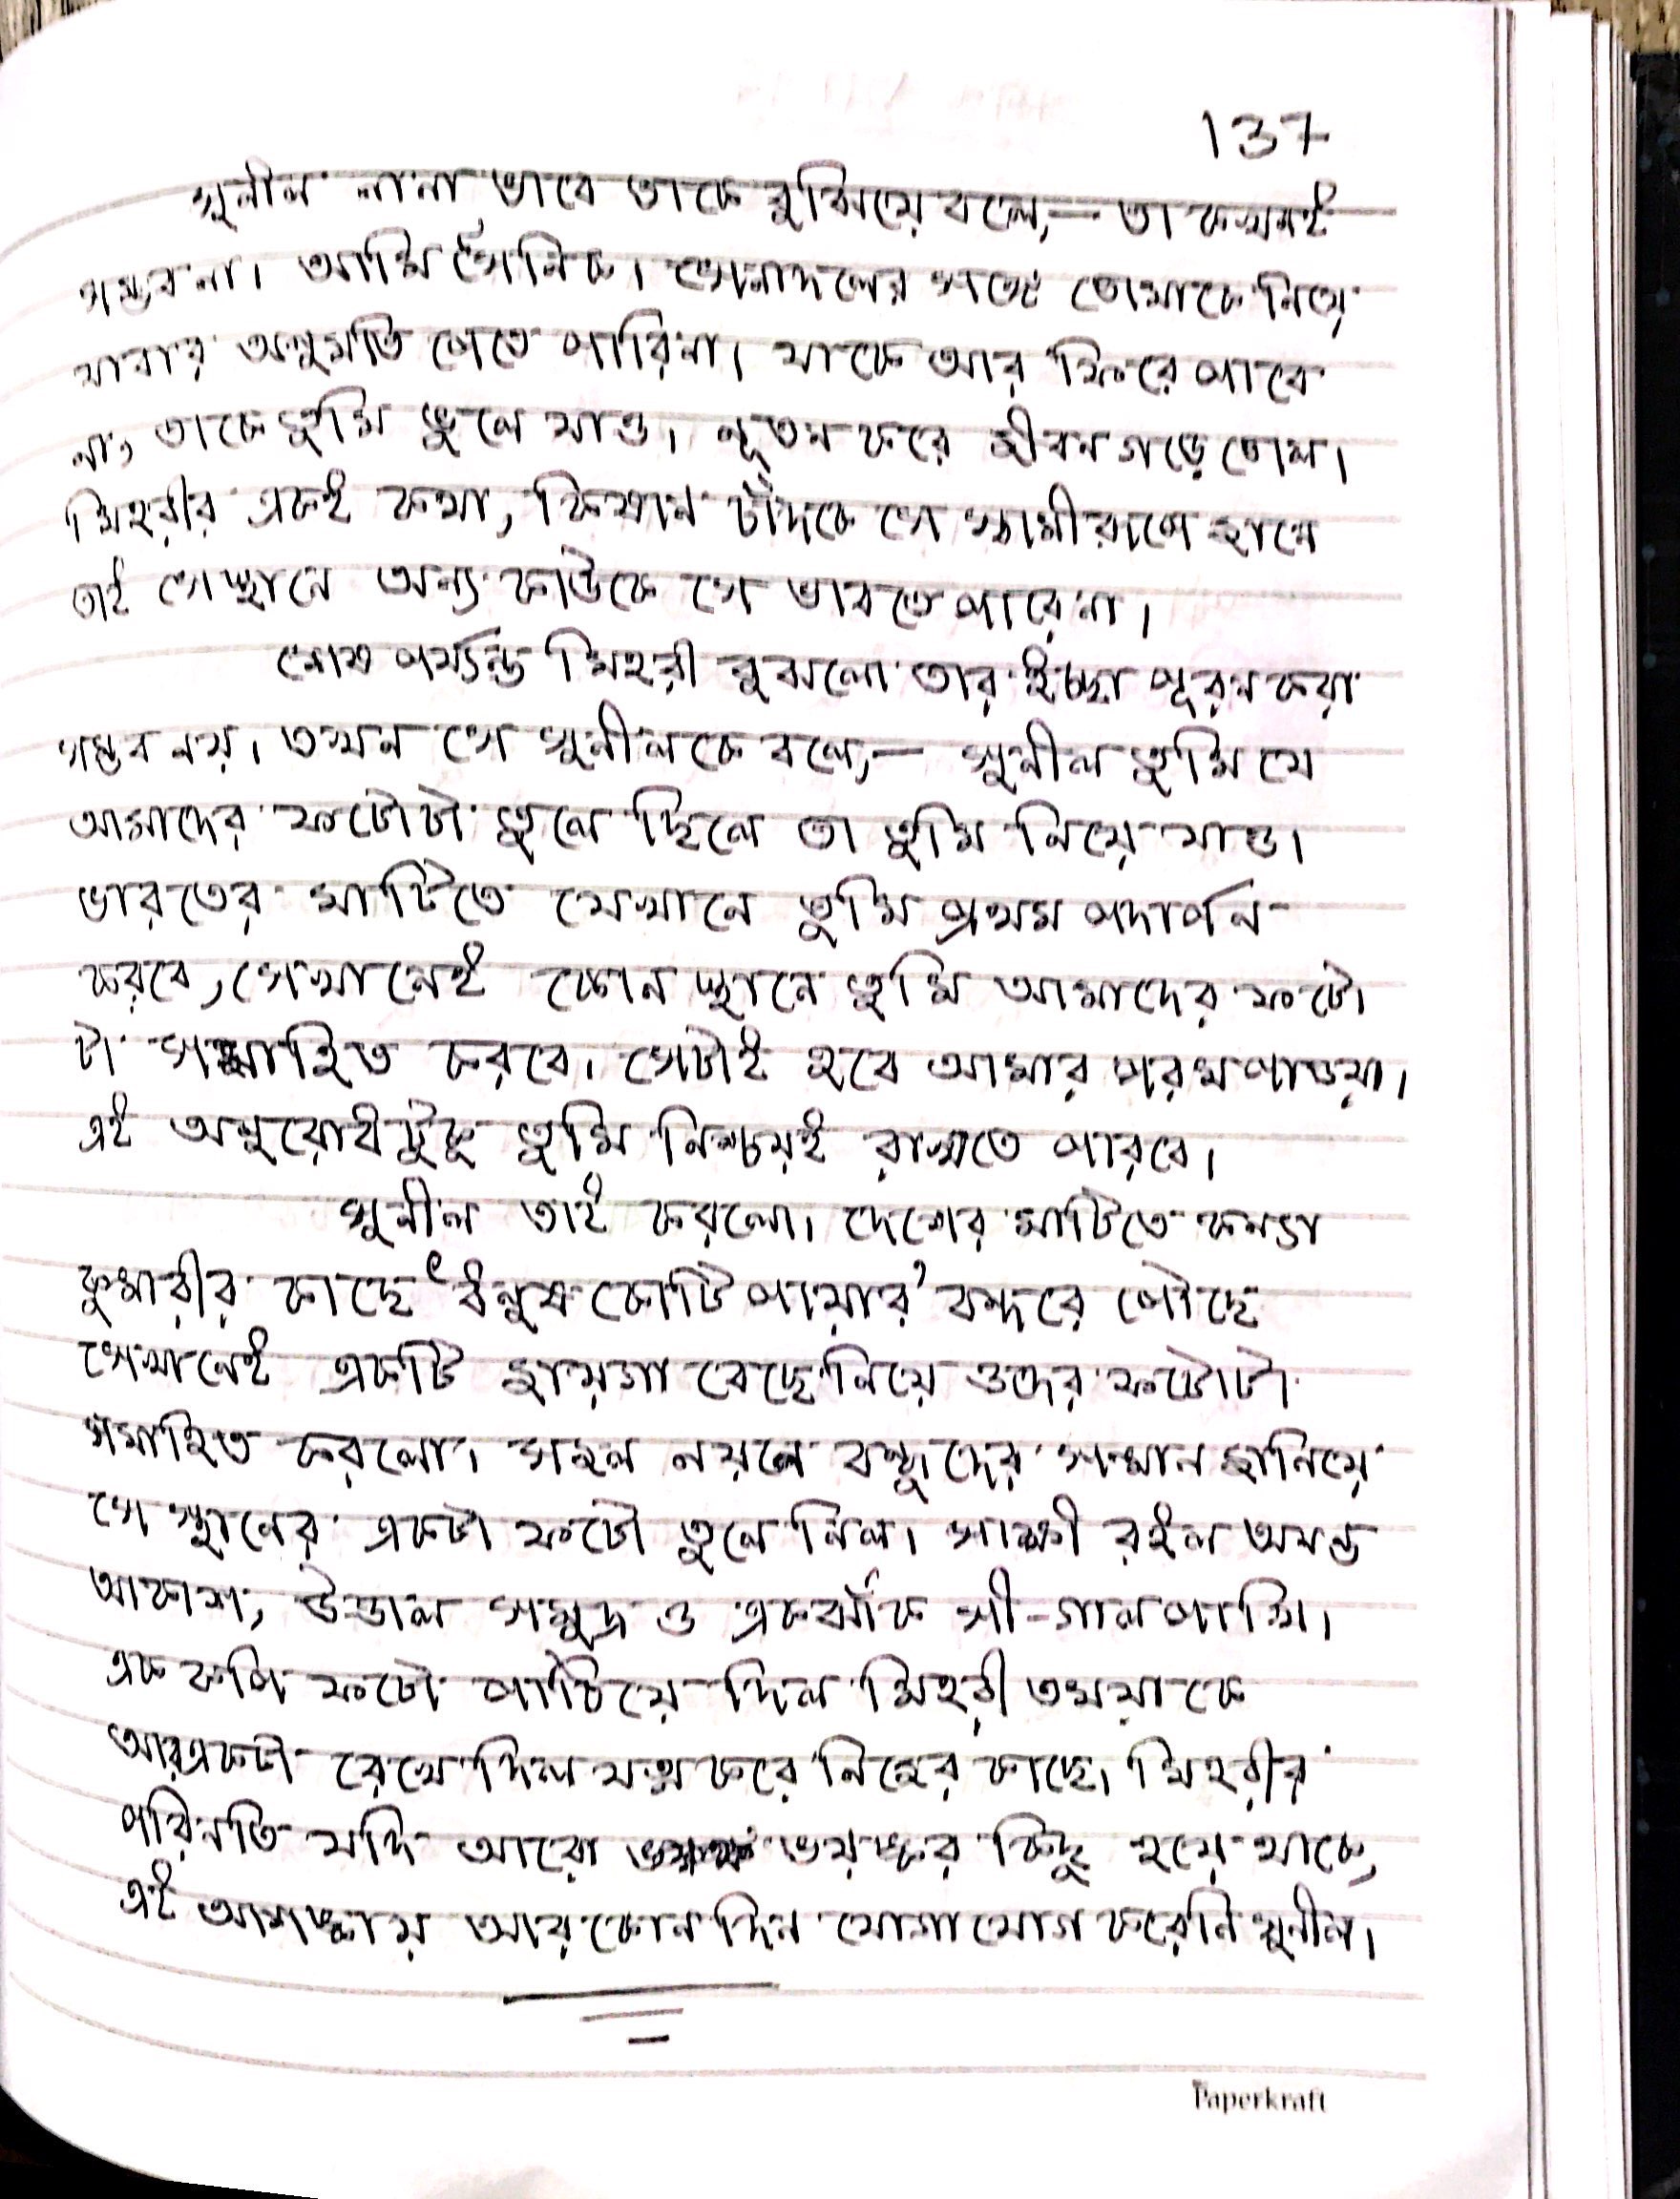 137
সুনীল নানা ভাবে তাকে বুঝিয়ে বলে,— তা কখনই
সম্ভব না। আমি সৈনিক। সেনাদলের সঙ্গে তোমাকে নিয়ে
যাবার অনুমতি পেতে পারিনা। যাকে আর ফিরে পাবে
না, তাকে তুমি ভুলে যাও। নূতন করে জীবন গড়ে তোল।
মিহরীর একই কথা, কিষান চাঁদকে সে স্বামীরূপে জানে
তাই সেস্থানে অন্য কাউকে সে ভাবতে পারেনা।
শেষ পর্য্যন্ত মিহরী বুঝলো তার ইচ্ছা পূরন করা
সম্ভব নয়। তখন সে সুনীলকে বলে,— সুনীল তুমি যে
আমাদের ফটোটা তুলে ছিলে তা তুমি নিয়ে যাও।
ভারতের মাটিতে যেখানে তুমি প্রথম পদার্পন
করবে, সেখানেই কোন স্থানে তুমি আমাদের ফটো
টা সমাহিত করবে। সেটাই হবে আমার পরম পাওয়া।
এই অনুরোধ টুকু তুমি নিশ্চয়ই রাখতে পারবে।
সুনীল তাই করলো। দেশের মাটিতে কন্যা
কুমারীর কাছে 'ধনুষ কোটি পায়ার' বন্দরে পৌছে
সেখানেই একটি জায়গা বেছে নিয়ে ওদের ফটোটা
সমাহিত করলো। সজল নয়নে বন্ধুদের সন্মান জানিয়ে
সে স্থানের একটা ফটো তুলে নিল। সাক্ষী রইল অনন্ত
আকাশ, উত্তাল সমুদ্র ও একঝাঁক সী-গাল পাখি।
এক কপি ফটো পাঠিয়ে দিল মিহরী তময়াকে
আর একটা রেখে দিল যত্ন করে নিজের কাছে। মিহরীর
পরিনতি যদি আরো ভয়ঙ্কর কিছু হয়ে থাকে,
এই আশঙ্কায় আর কোন দিন যোগাযোগ করেনি সুনীল।
Paperkraft